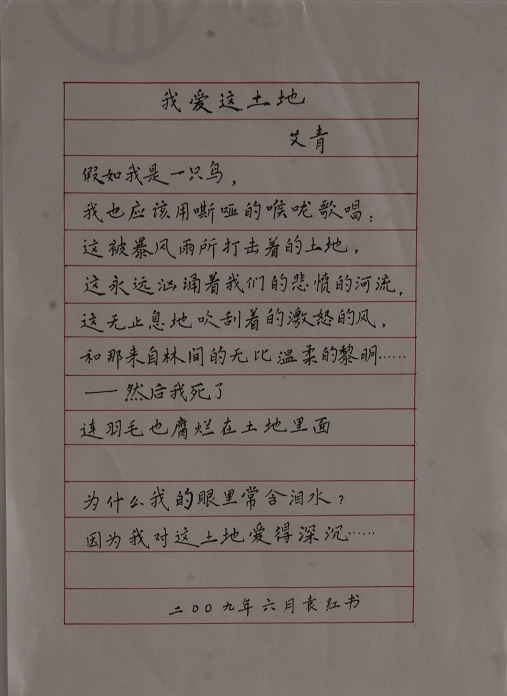 我爱这土地
艾青
假如我是一只鸟，
我也应该用嘶哑的喉咙歌唱：
这被暴风雨所打击着的土地，
这永远汹涌着我们的悲愤的河流，
这无止息地吹刮着的激怒的风，
和那来自林间的无比温柔的黎明……
——然后我死了
连羽毛也腐烂在土地里面
为什么我的眼里常含泪水？
因为我对这土地爱得深沉……
二〇〇九年六月袁红书